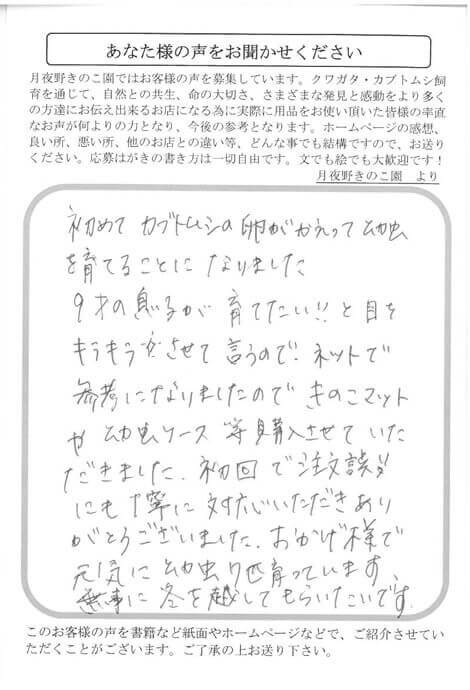 あなた様の声をお聞かせください
月夜野きのこ園ではお客様の声を募集しています。クワガタ・カブトムシ飼
育を通じて、自然との共生、命の大切さ、さまざまな発見と感動をより多く
の方達にお伝え出来るお店になる為に実際に用品をお使い頂いた皆様の率直
なお声が何よりの力となり、今後の参考となります。ホームページの感想、
良い所、悪い所、他のお店との違い等、どんな事でも結構ですので、お送り
ください。応募はがきの書き方は一切自由です。文でも絵でも大歓迎です！
月夜野きのこ園　より
初めて カブトムシの卵がかえって 幼虫
を育てることに なりました
9才の息子が 育てたい!! と 目を
キラキラさせて 言うので、ネットで
参考になりましたので きのこマット
や 幼虫ケース 等購入させて いた
だきました. 初回 で 注文誤り
にも 丁寧に 対応いただき あり
がとうございました. おかげ様で
元気に 幼虫 育っています、
無事に 冬を 越して もらいたいです.
このお客様の声を書籍など紙面やホームページなどで、ご紹介させてい
ただくことがございます。ご了承の上お送り下さい。